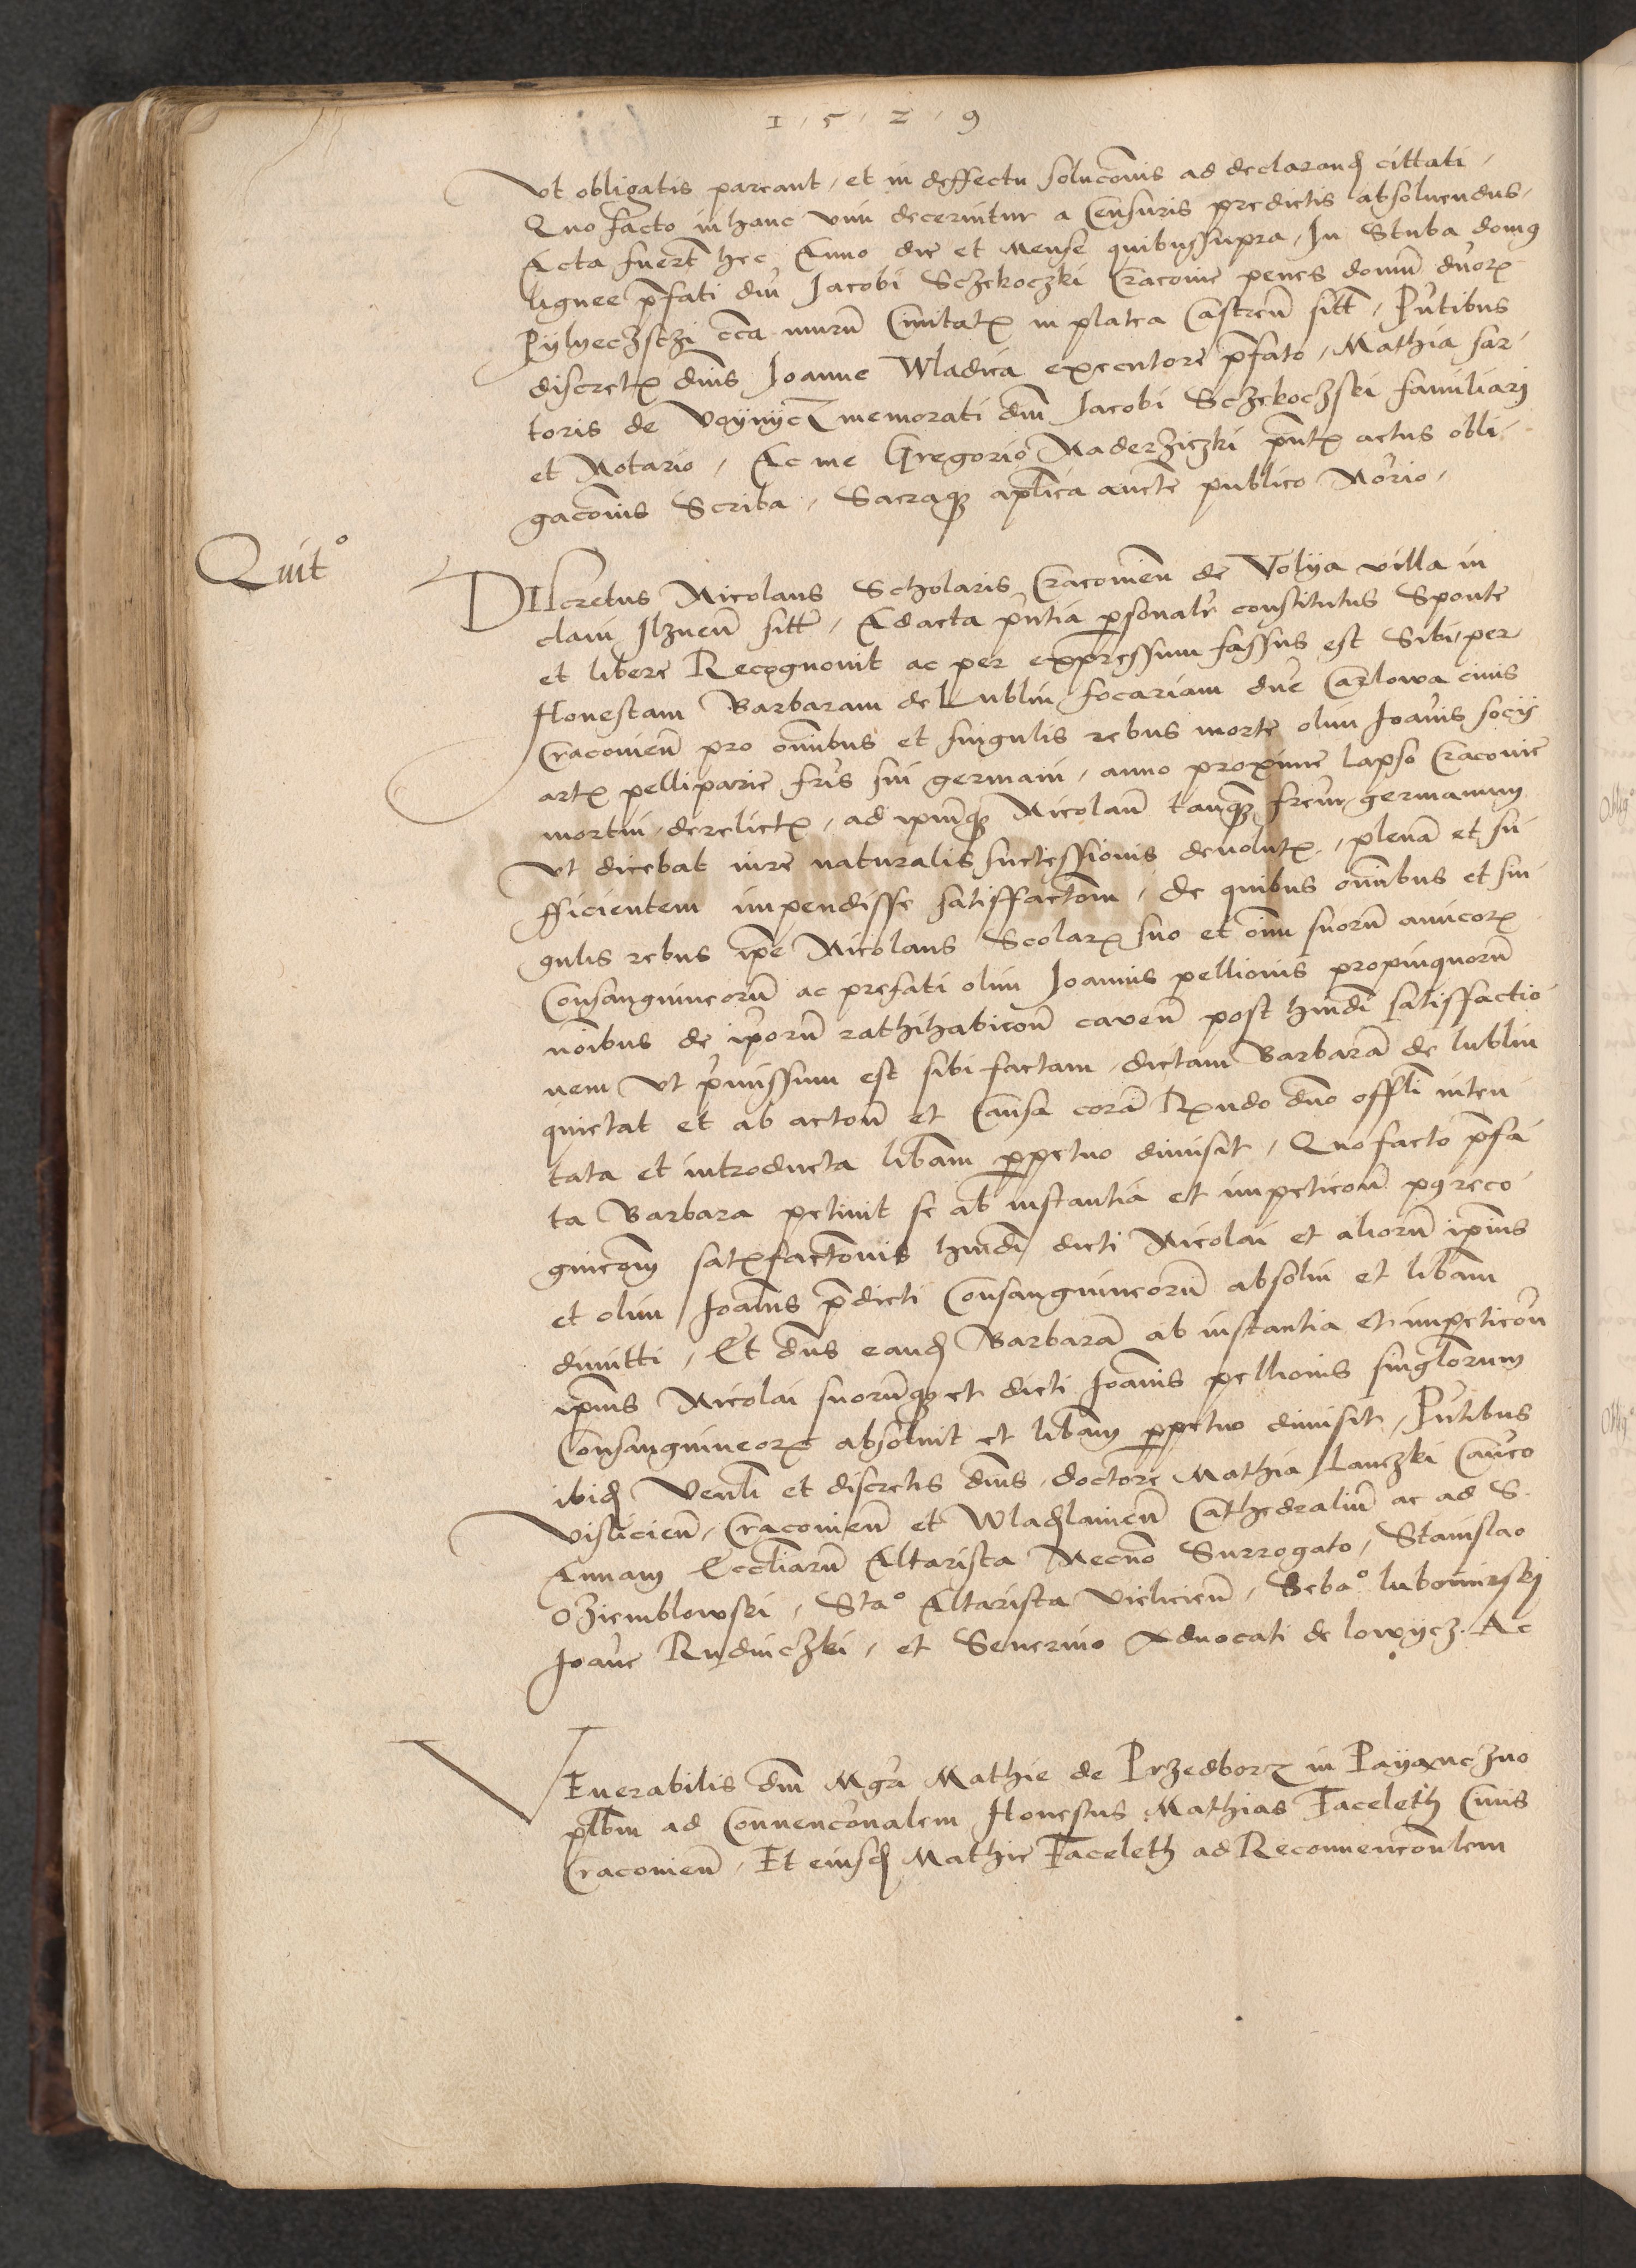 1 · 5 · 2 · 9
Vt obligatis pareant, et in deffectu soluc̄onis ad declarand̄ cittati,
Quo facto in hanc vim decernitur a Censuris predictis absoluendus,
Acta fuerūt hec Anno die et Mense quibussupra, In Stuba domꝯ
lignee p̄fati dn̄i Jacobi Sczekoczki Cracovie penes domū dn̄orꝝ
Pylyeczsczi cc̄a murū Ciuitatꝭ in platea Castren̄ sitt̄, Pn̄tibus
discretꝭ dn̄is Joanne Wladica executore p̄fato, Mathia sar
toris de Voynycz memorati dn̄i Jacobi Sczekoczski familiarj
et Notario, Ac me Gregorio Naderziczki pn̄tꝭ actus obli
gac̄onis Scriba, Sacraqꝫ apl̄ica auctē publico No̅rio,
Quit°
DIscretus Nicolaus Scholaris Cracovien̄ de Volya villa in
clavi Ilznen̄ sitt̄, Ad acta pn̄tia ꝑsonalr̄ constitutus Sponte
et libere Recognouit ac per expressum fassus est Sibi per
Honestam Barbaram de Lublin focariam dn̄e Carlowa ciuis
Cracovien̄ pro om̄ibus et singulis rebus morte olim Joan̄is socij
artꝭ pelliparie fr̄is sui germani, anno proxime lapso Cracovie
mortui derelictꝭ, ad ipm̄qꝫ Nicolaū tanqꝫ fr̄em germanum
Vt dicebat iure naturalis suctessionis deuolutꝭ, plenā et su
fficientem impendisse satisffactōm, de quibus om̄ibus et sin
gulis rebus ip̄e Nicolaus Scolarꝭ suo et om̄i suorū amicorꝝ
Consanguineorū ac prefati olim Joannis pellionis propinquorū
no̅ibus de ip̄orū rathihabicōn̄ caven̄ post hm̄di satisfactio
nem Vt pr̄missum est sibi factam, dictam Barbarā de lublin
quietat et ab actōn̄ et Causa corā Rn̄do dn̄o offl̄i inten
tata et introducta lib̄am ꝑpetuo dimisit, Quo facto p̄fa
ta Barbara petiuit se ab instantia et impeticōn̄ ꝓ reco
gnicōm satꝭfactōnis hm̄di dicti Nicolai et aliorū ip̄ius
et olim Joan̄is p̄dicti Consanguineorū absolui et lib̄am
dimitti, Et dn̄s eand̄ Barbarā ab instantia et impeticōn̄
ip̄ius Nicolai suorūqꝫ et dicti Joan̄is pellionis singlōrum
Consanguineorꝝ absoluit et lib̄am ꝑpetuo dimisit, Pn̄tibus
ibid̄ Ven̄li et discretis dn̄is, doctore Mathia Lanczki Can̄co
Vislicien̄, Cracovien̄ et Wlad̄lavien̄ Cathedraliū ac ad S.
Annam Eccl̄iarū Altarista Necn̄o Surrogato, Stanislao
Oziemblowski, Sta° Altarista vielicien̄, Seba° lubomirskj
Joan̄e Rudniczki, et Seuerino Aduocati de lowycz. Ac
VEnerabilis dn̄i Mgr̄i Mathie de Przedborz in Payanczno
plb̄ni ad Conuencōnalem Honestus Mathias Faceleth Ciuis
Cracovien̄, Et eiusd̄ Mathie Faceleth ad Reconuencōnlem